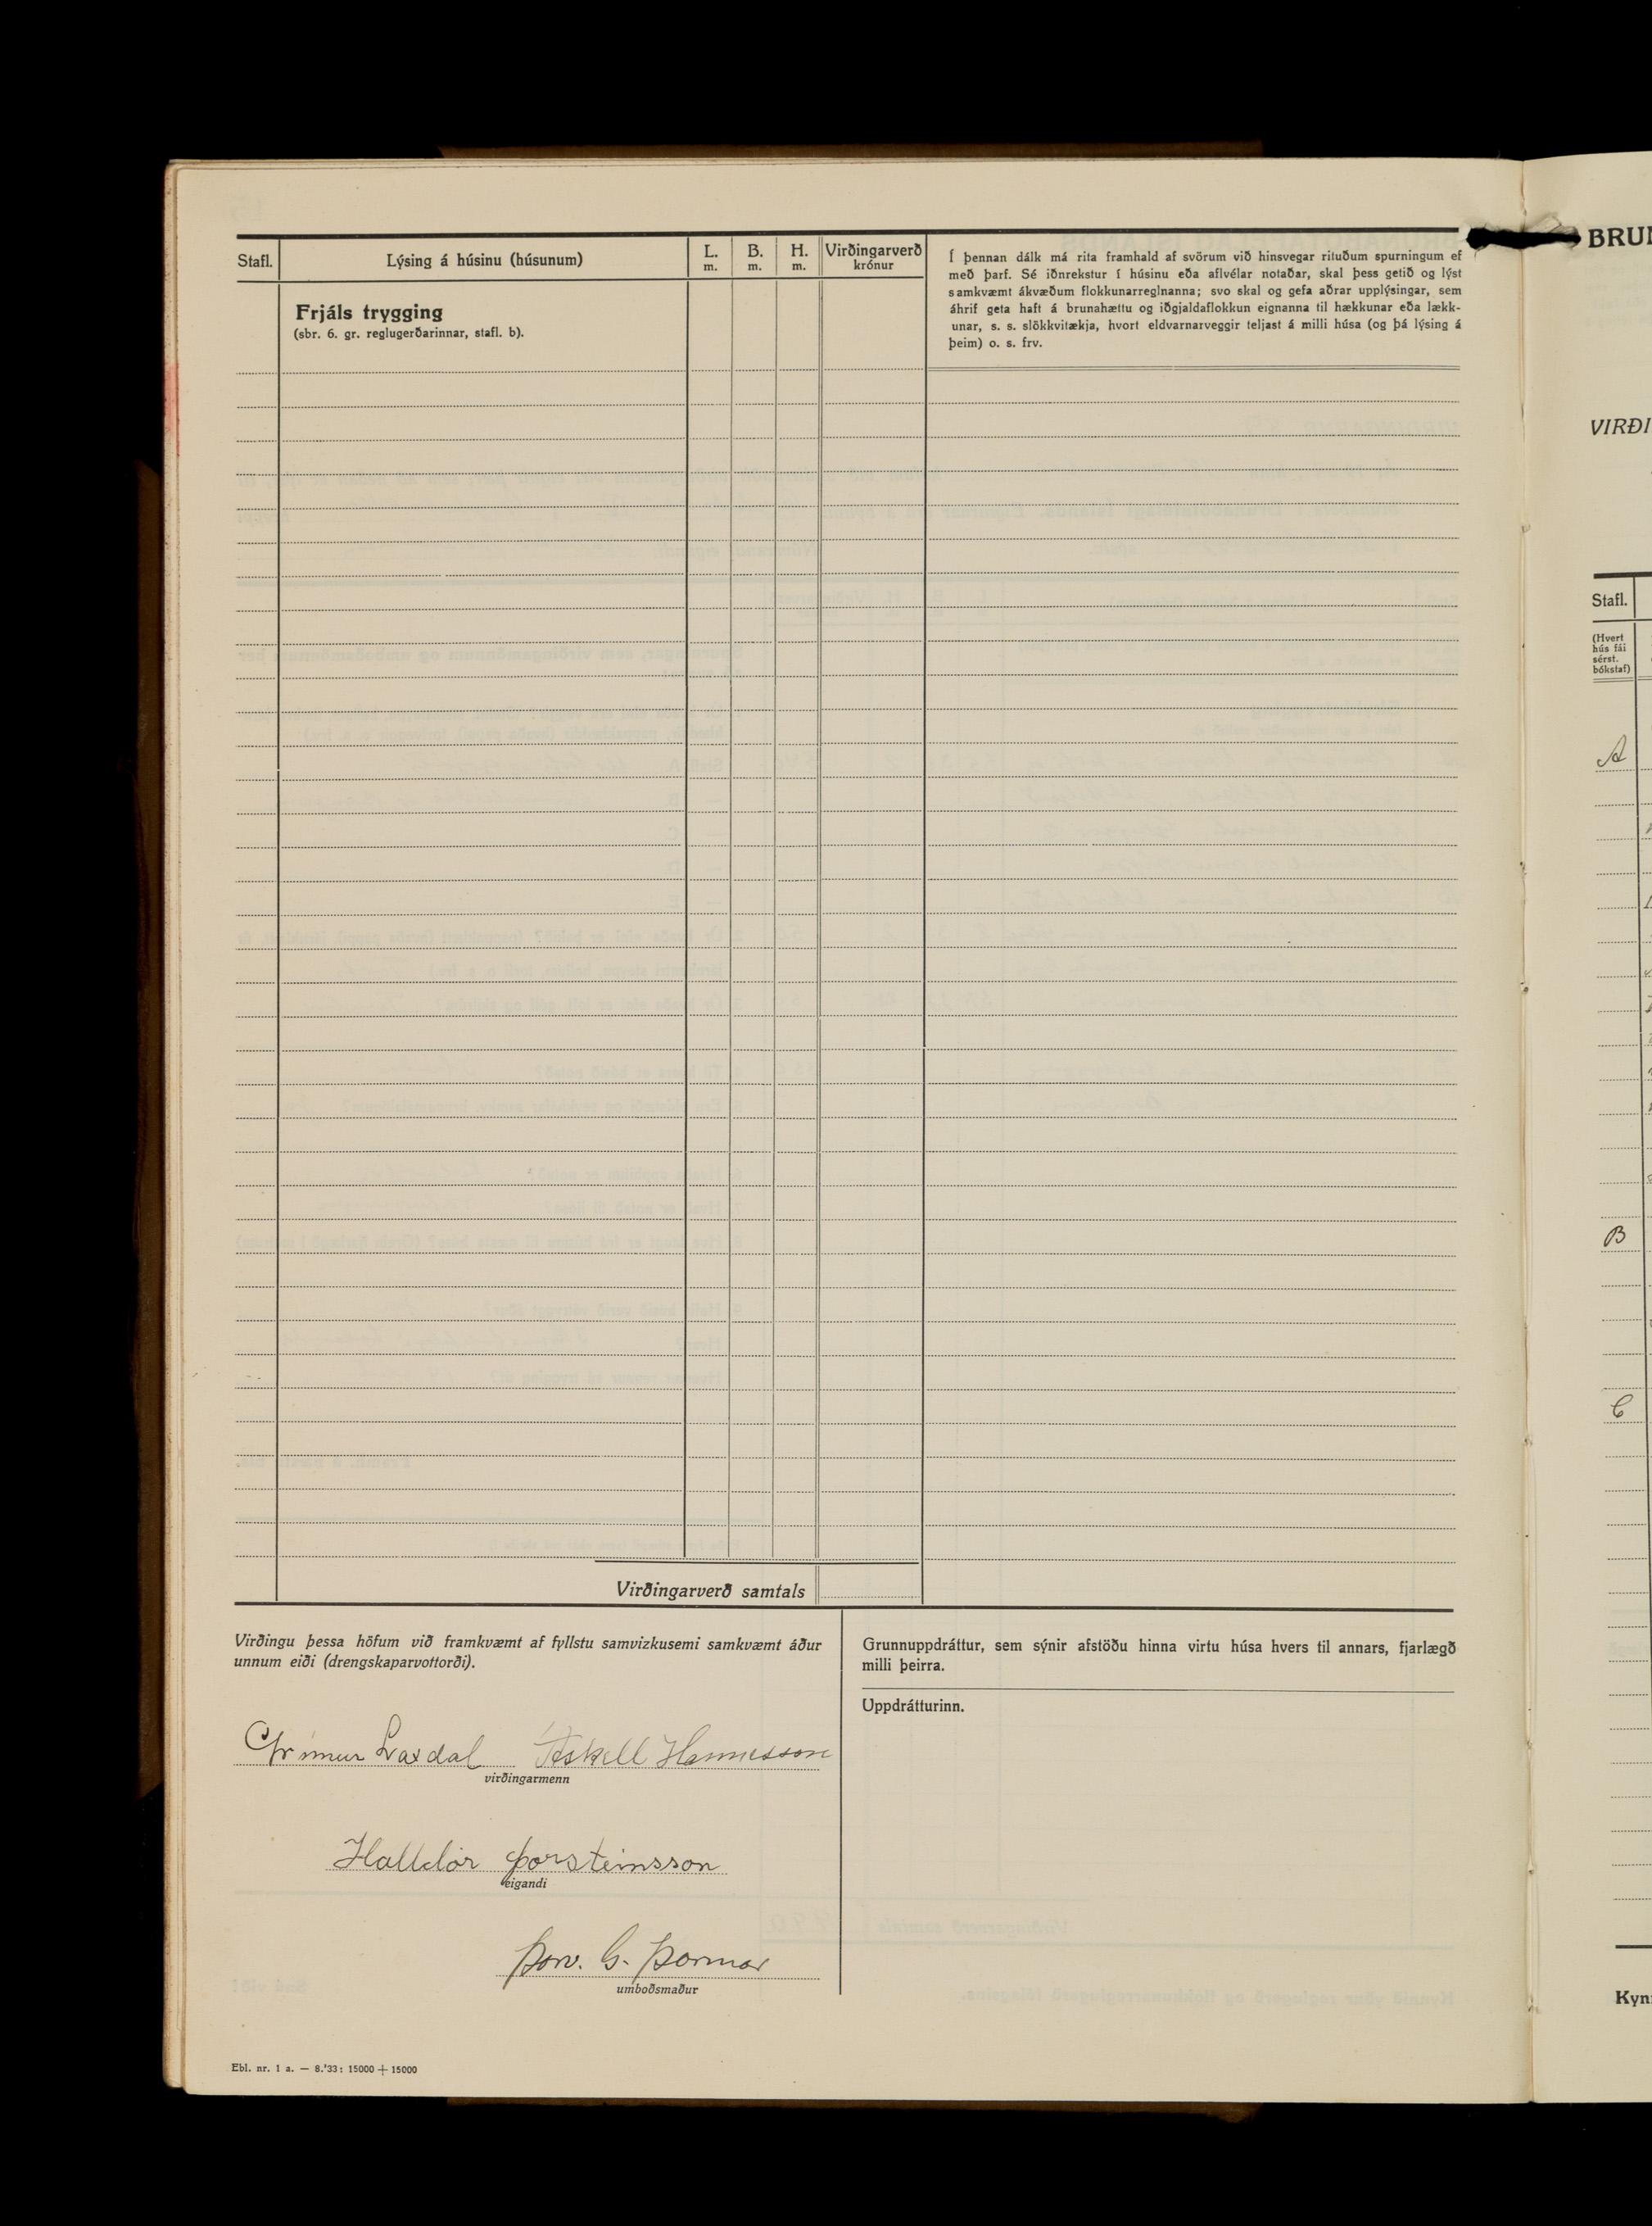 Stafl. Lýsing á húsinu (húsunum) L. m. B. m. H. m. Virðingarverð krónur
Frjáls trygging
(sbr. 6. gr. reglugerðarinnar, stafl. b).
Í þennan dálk má rita framhald af svörum við hinsvegar rituðum spurningum ef
með þarf. Sé iðnrekstur í húsinu eða aflvélar notaðar, skal þess getið og lýst
samkvæmt ákvæðum flokkunarreglnanna; svo skal og gefa aðrar upplýsingar, sem
áhrif geta haft á brunahættu og iðgjaldaflokkun eignanna til hækkunar eða lækk-
unar, s. s. slökkvitækja, hvort eldvarnarveggir teljast á milli húsa (og þá lýsing á
þeim) o. s. frv.
Virðingarverð samtals
Virðingu þessa höfum við framkvæmt af fyllstu samvizkusemi samkvæmt áður
unnum eiði (drengskaparvottorði).
Grímur Laxdal Áskell Hannesson
virðingarmenn
Halldór Þorsteinsson
eigandi
Þorv. G. Þormar
umboðsmaður
Grunnuppdráttur, sem sýnir afstöðu hinna virtu húsa hvers til annars, fjarlægð
milli þeirra.
Uppdrátturinn.
Ebl. nr. 1 a. — 8.'33: 15000 + 15000
BRUN
VIRÐI
Stafl.
(Hvert
hús fái
sérst.
bókstaf)
A
B
C
Kyn